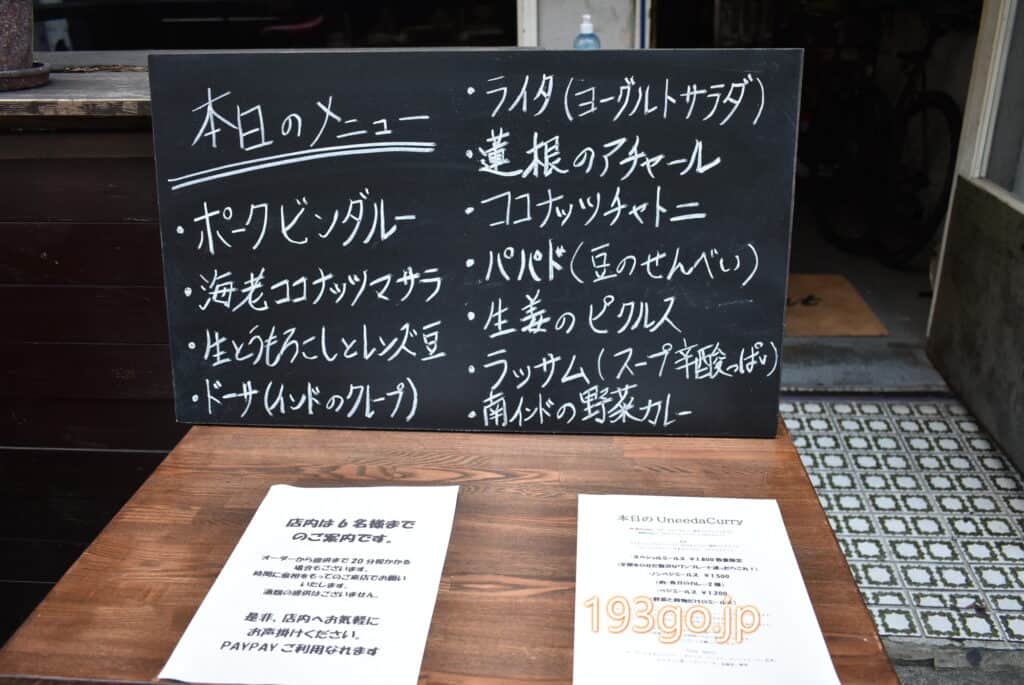 本日のメニュー
・ポークビンダルー
・海老ココナッツマサラ
・生とうもろこしとレンズ豆
・ドーサ(インドのクレープ)
・ライタ(ヨーグルトサラダ)
・蓮根のアチャール
・ココナッツチャトニ
・パパド(豆のせんべい)
・生姜のピクルス
・ラッサム(スープ辛酸っぱい)
・南インドの野菜カレー
店内は6名様まで
のご案内です。
オーダーから提供まで20分程かかる
場合もございます。
時間に余裕をもってのご来店でお願い
いたします。
酒類の提供はございません。
是非、店内へお気軽に
お声掛けください。
PAYPAYご利用なれます
本日のUneedaCurry
スペシャルミールス ¥1,800 数量限定
ノンベジミールス ¥1500
ベジミールス ¥1200
193go.jp